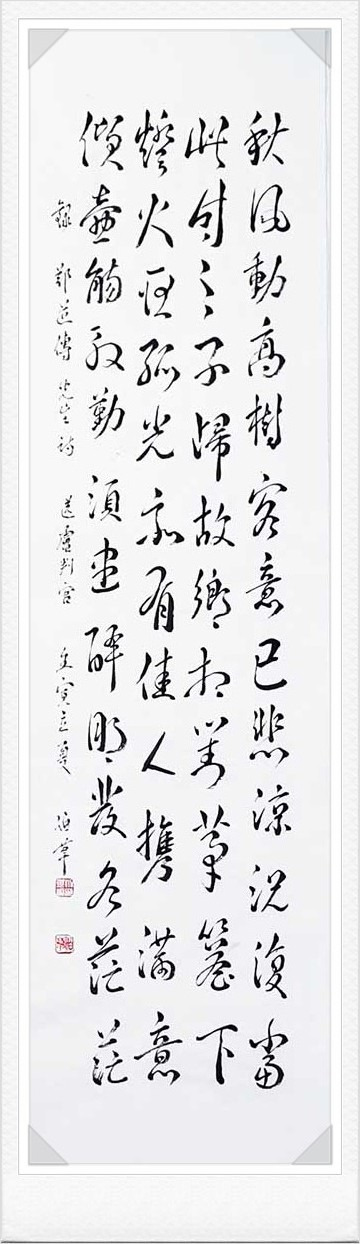 秋風動高樹客意已悲涼況復當
此時之子歸故鄉相對茅簷下
燈火孤光亦有佳人攜滿意
傾壺觴殷勤須盡醉明發各茫茫
錄 鄭道傳先生詩 送盧判官 壬寅立夏